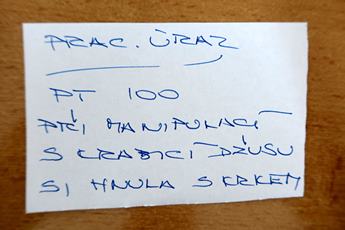 PRAC. ÚRAZ
PT 100
PŘI MANIPULACÍ
S KRABICÍ DŽUSU
SI HNULA S KRKEM